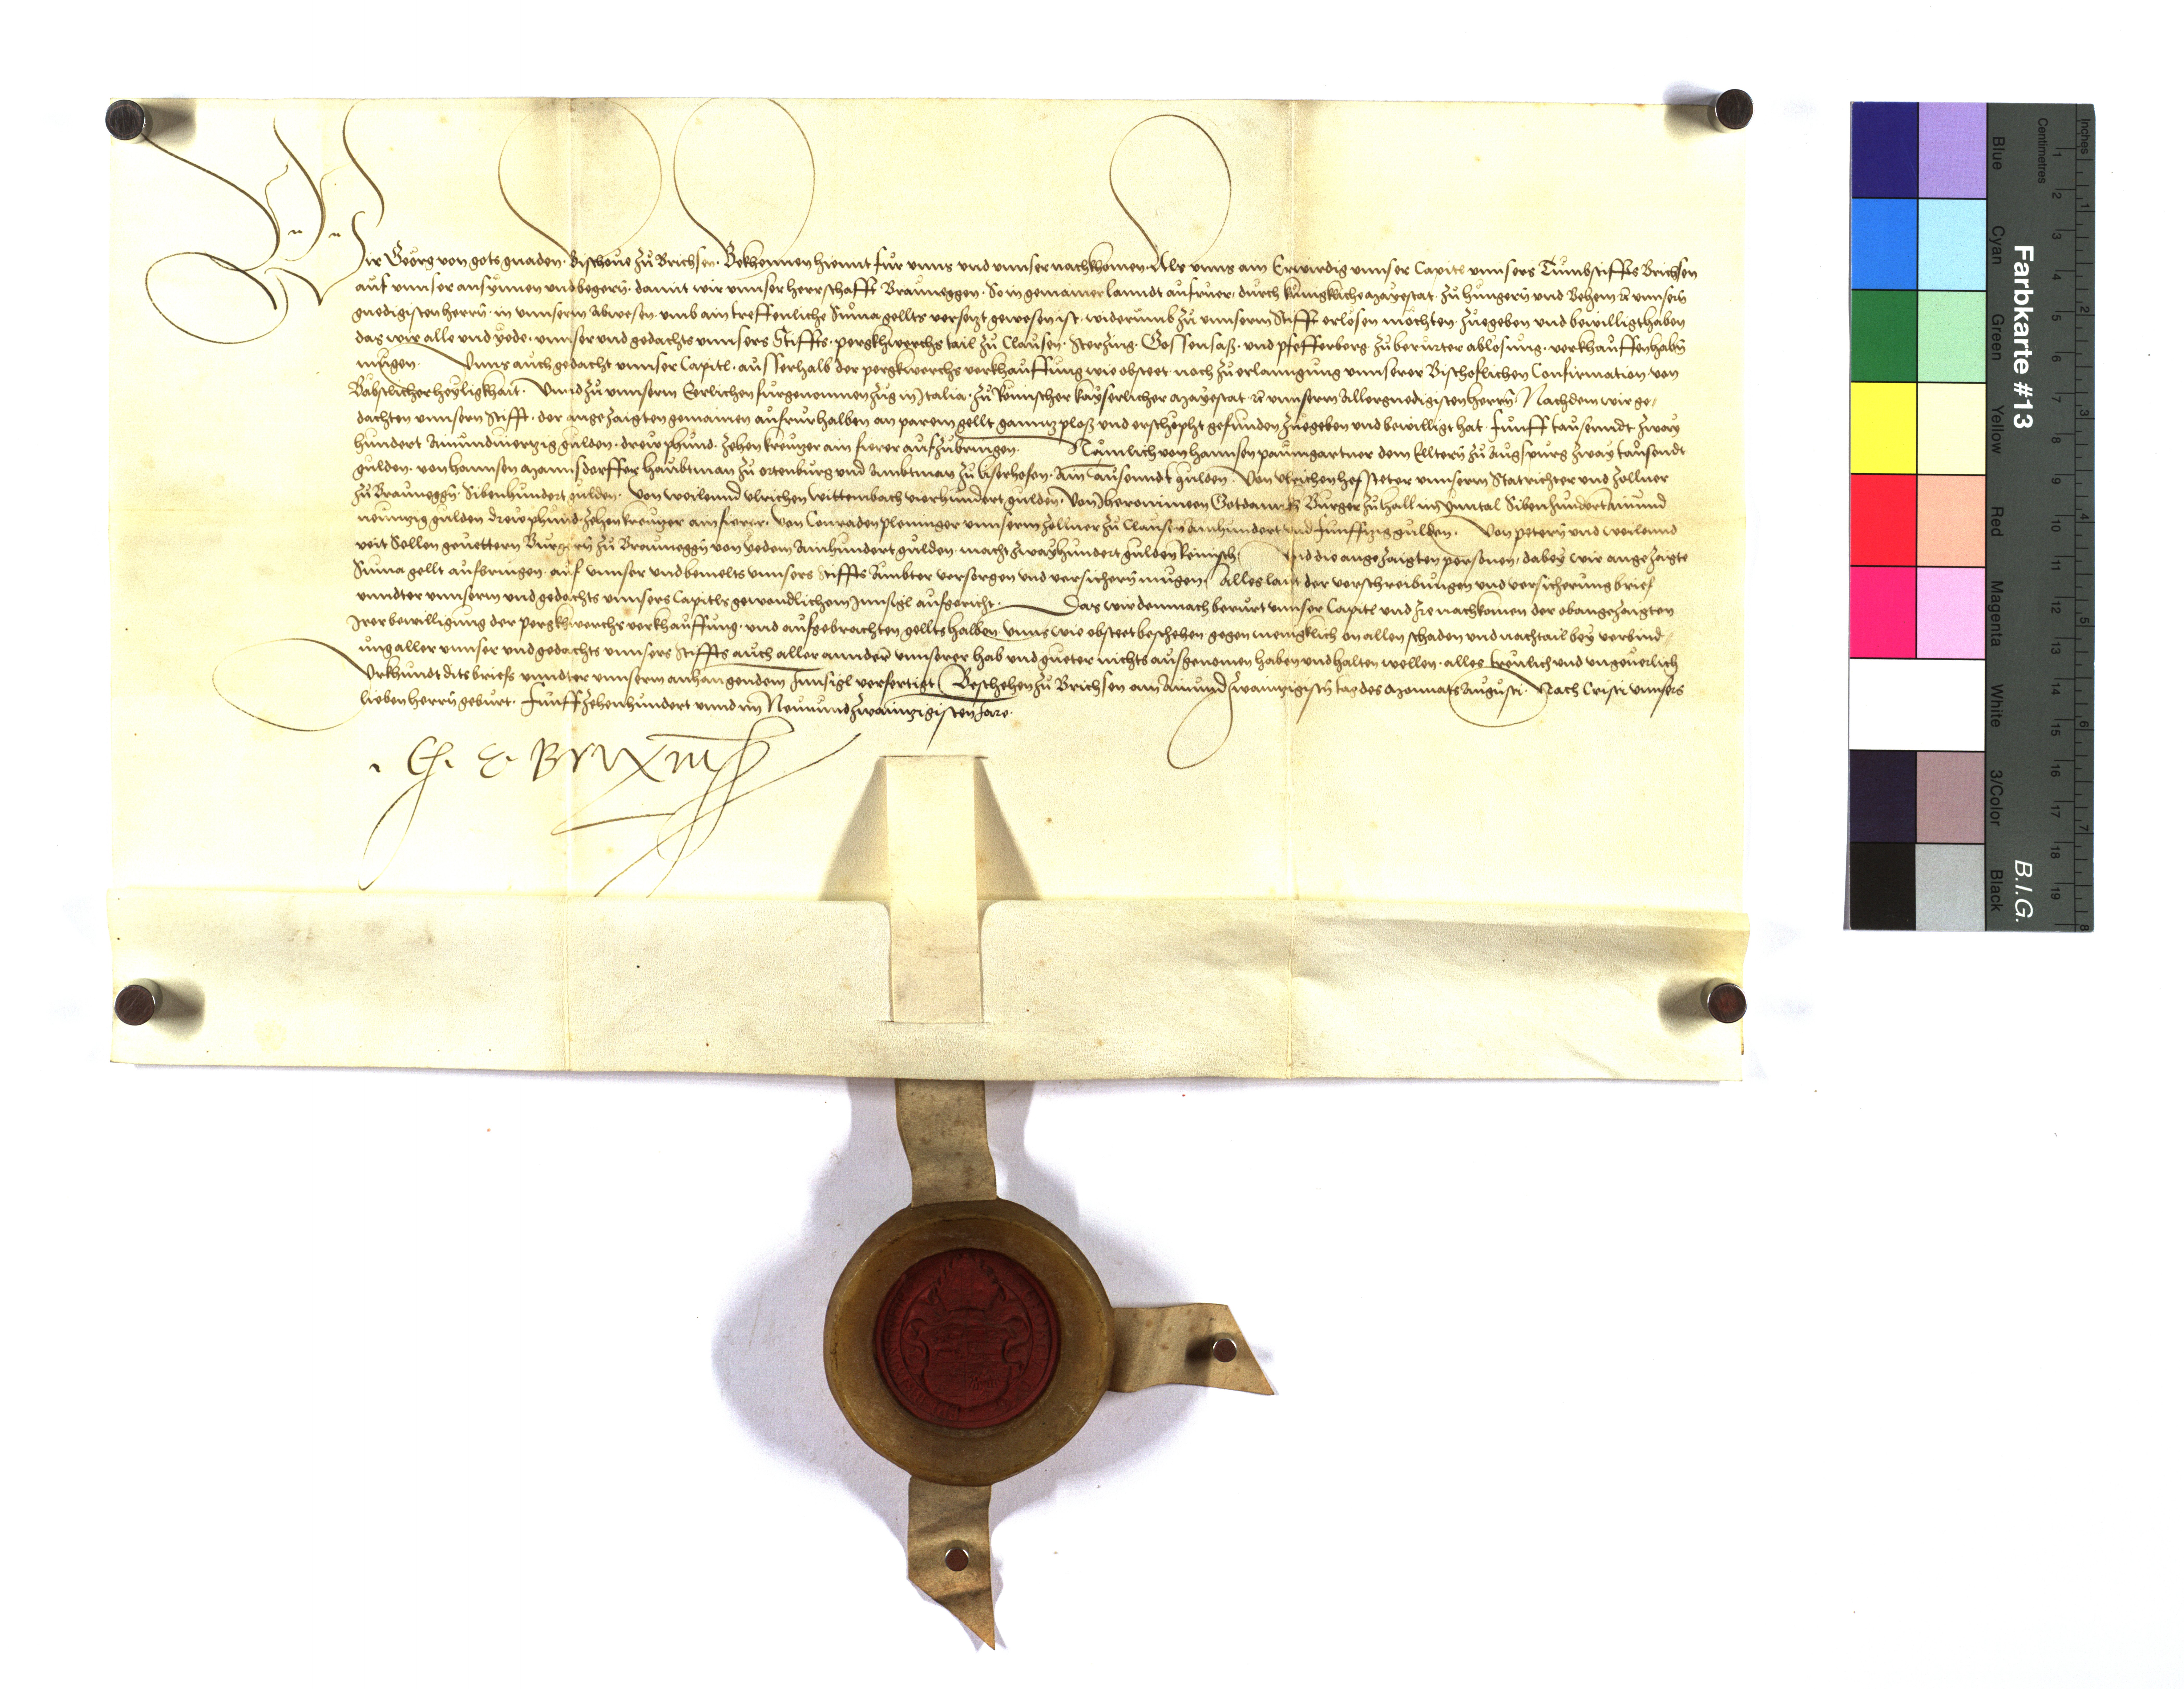 Wir Georg von gots gnaden. Bischoue zů Brichsen. Bekhennen hiemit für vnns vnd vnnser nachkhomen. Als vnns ain Erwirdig vnnser Capitl vnnsers Tumbstiffts Brichsen
auf vnnser ansynnen vnd begern. damit wir vnnser herrschafft Brauneggen. So in gemainer lanndt aufruer. durch kunigkliche Mayestat. zů hungern vnd Behem ꝛc vnnsern
gnedigisten herrn. in vnnserm abwesen. vmb ain treffenliche Suma gellts versezt gewesen ist. widerumb zů vnnserm Stifft erlösen möchten. zuegeben vnd bewilligt haben
das wir alle vnd yede. vnnser vnd gedachts vnnsers Stiffts. pergkhwerchs tail zů Clausen. Sterzing. Gossensaß. vnd pfefferberg zů berurter ablosung. verkhauffen haben
mugen. Vnns auch gedacht vnnser Capitl. ausserhalb der pergkwerchs verkhauffung wie obsteet. noch zů erlanngung vnnserer Bischoflichen Confirmation von
Bäbstlicher heyligkhait. Vnnd zů vnnserm Eerlichen furgenomen zug in Italia. zů Römischer kayserlicher Mayestat ꝛc vnnserm Allergnedigisten herrn. Nachdem wir ge/
dachten vnnsern Stifft. der angezaigten gemainen aufrur halben an parem gellt ganntz ploß vnd erschöpht gefunden zuegeben vnd bewilligt hat. funff tausenndt zway
hundert Ainundvierzig gulden. drew phund. zehen kreuzer ain fierer aufzubringen. Nämlich von hannsen paumgartner dem Elltern zů Augspurg zway tausendt
gulden. von hannsen Mannsdorffer haubtman zů ortenburg vnd Ambtman zů liserhofen. Ain Tausenndt gulden. Von Vlrichen hofsteter vnnserm Statrichter vnd zollner
zů Brauneggn. Sibenhundert gulden. Von weilennd Vlrichen wittembach vierhundert gulden. Von Jheronimeen Gotdanckh Burger zů hall im Ynntal Sibenhundert ainund
neunzig gulden drew phund. zehen kreuzer ain fierer. Von Conraden pleninger vnnserm zollner zů Clausen ainhundert vnd funffzig gulden. Von petern vnd weilennd
veit Sellen geuettern Burgern zů Brauneggn von yedem ainhundert gulden. macht zwayhundert gulden Reinisch. Vnd die angezaigten personen, dabey wir angezaigte
Suma gellt aufbringen. auf vnnser vnd bemelts vnnsers Stiffts Ämbter versorgen vnd versichern mugen. alles laut der verschreibungen vnd versicherung brief
vnndter vnnserm vnd gedachts vnnsers Capitls gewondlichem Innsigl aufgericht. Das wir demnach berurt vnnser Capitl vnd Ire nachkomen der obangezaigten
Irer bewilligung der pergkhwerchs verkhauffung. vnd aufgebrachten gellts halben. vnns wie obsteet beschehen. gegen menigklich on allen schaden vnd nachtail bey verbind/
ung aller vnnser vnd gedachts vnnsers Stiffts auch aller annderer vnnserer hab vnd gueter nichts ausgenomen haben vnd halten wellen. alles treulich vnd vngeuerlich
Vrkhundt dits briefs vnndter vnnserm anhangendem Innsigl verfertigt. Beschehen zů Brichsen am Ainund zwainzigisten tag des Monnats Augusti. Nach Cristi vnnsers
lieben herrn geburt. Funffzehenhundert vnnd im Neunundzwainzigisten Jare.
G. E. Brixin
Farbkarte #13
B.I.G.
Inches
Centimetres
Blue
Cyan
Green
Yellow
Red
Magenta
White
3/Color
Black
1 2 3 4 5 6 7 8 9 10 11 12 13 14 15 16 17 18 19
1 2 3 4 5 6 7 8